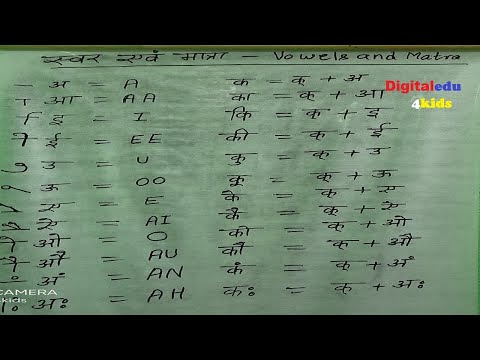 स्वर एवं मात्रा – Vowels and Matra
– अ = A क = क् + अ
ा आ = AA का = क् + आ
ि इ = I कि = क् + इ
ी ई = EE की = क् + ई
ु उ = U कु = क् + उ
ू ऊ = OO कू = क् + ऊ
े ए = E के = क् + ए
ै ऐ = AI कै = क् + ऐ
ो ओ = O को = क् + ओ
ौ औ = AU कौ = क् + औ
ं अं = AN कं = क् + अं
ः अः = AH कः = क् + अः
Digitaledu
4kids
CAMERA
kids